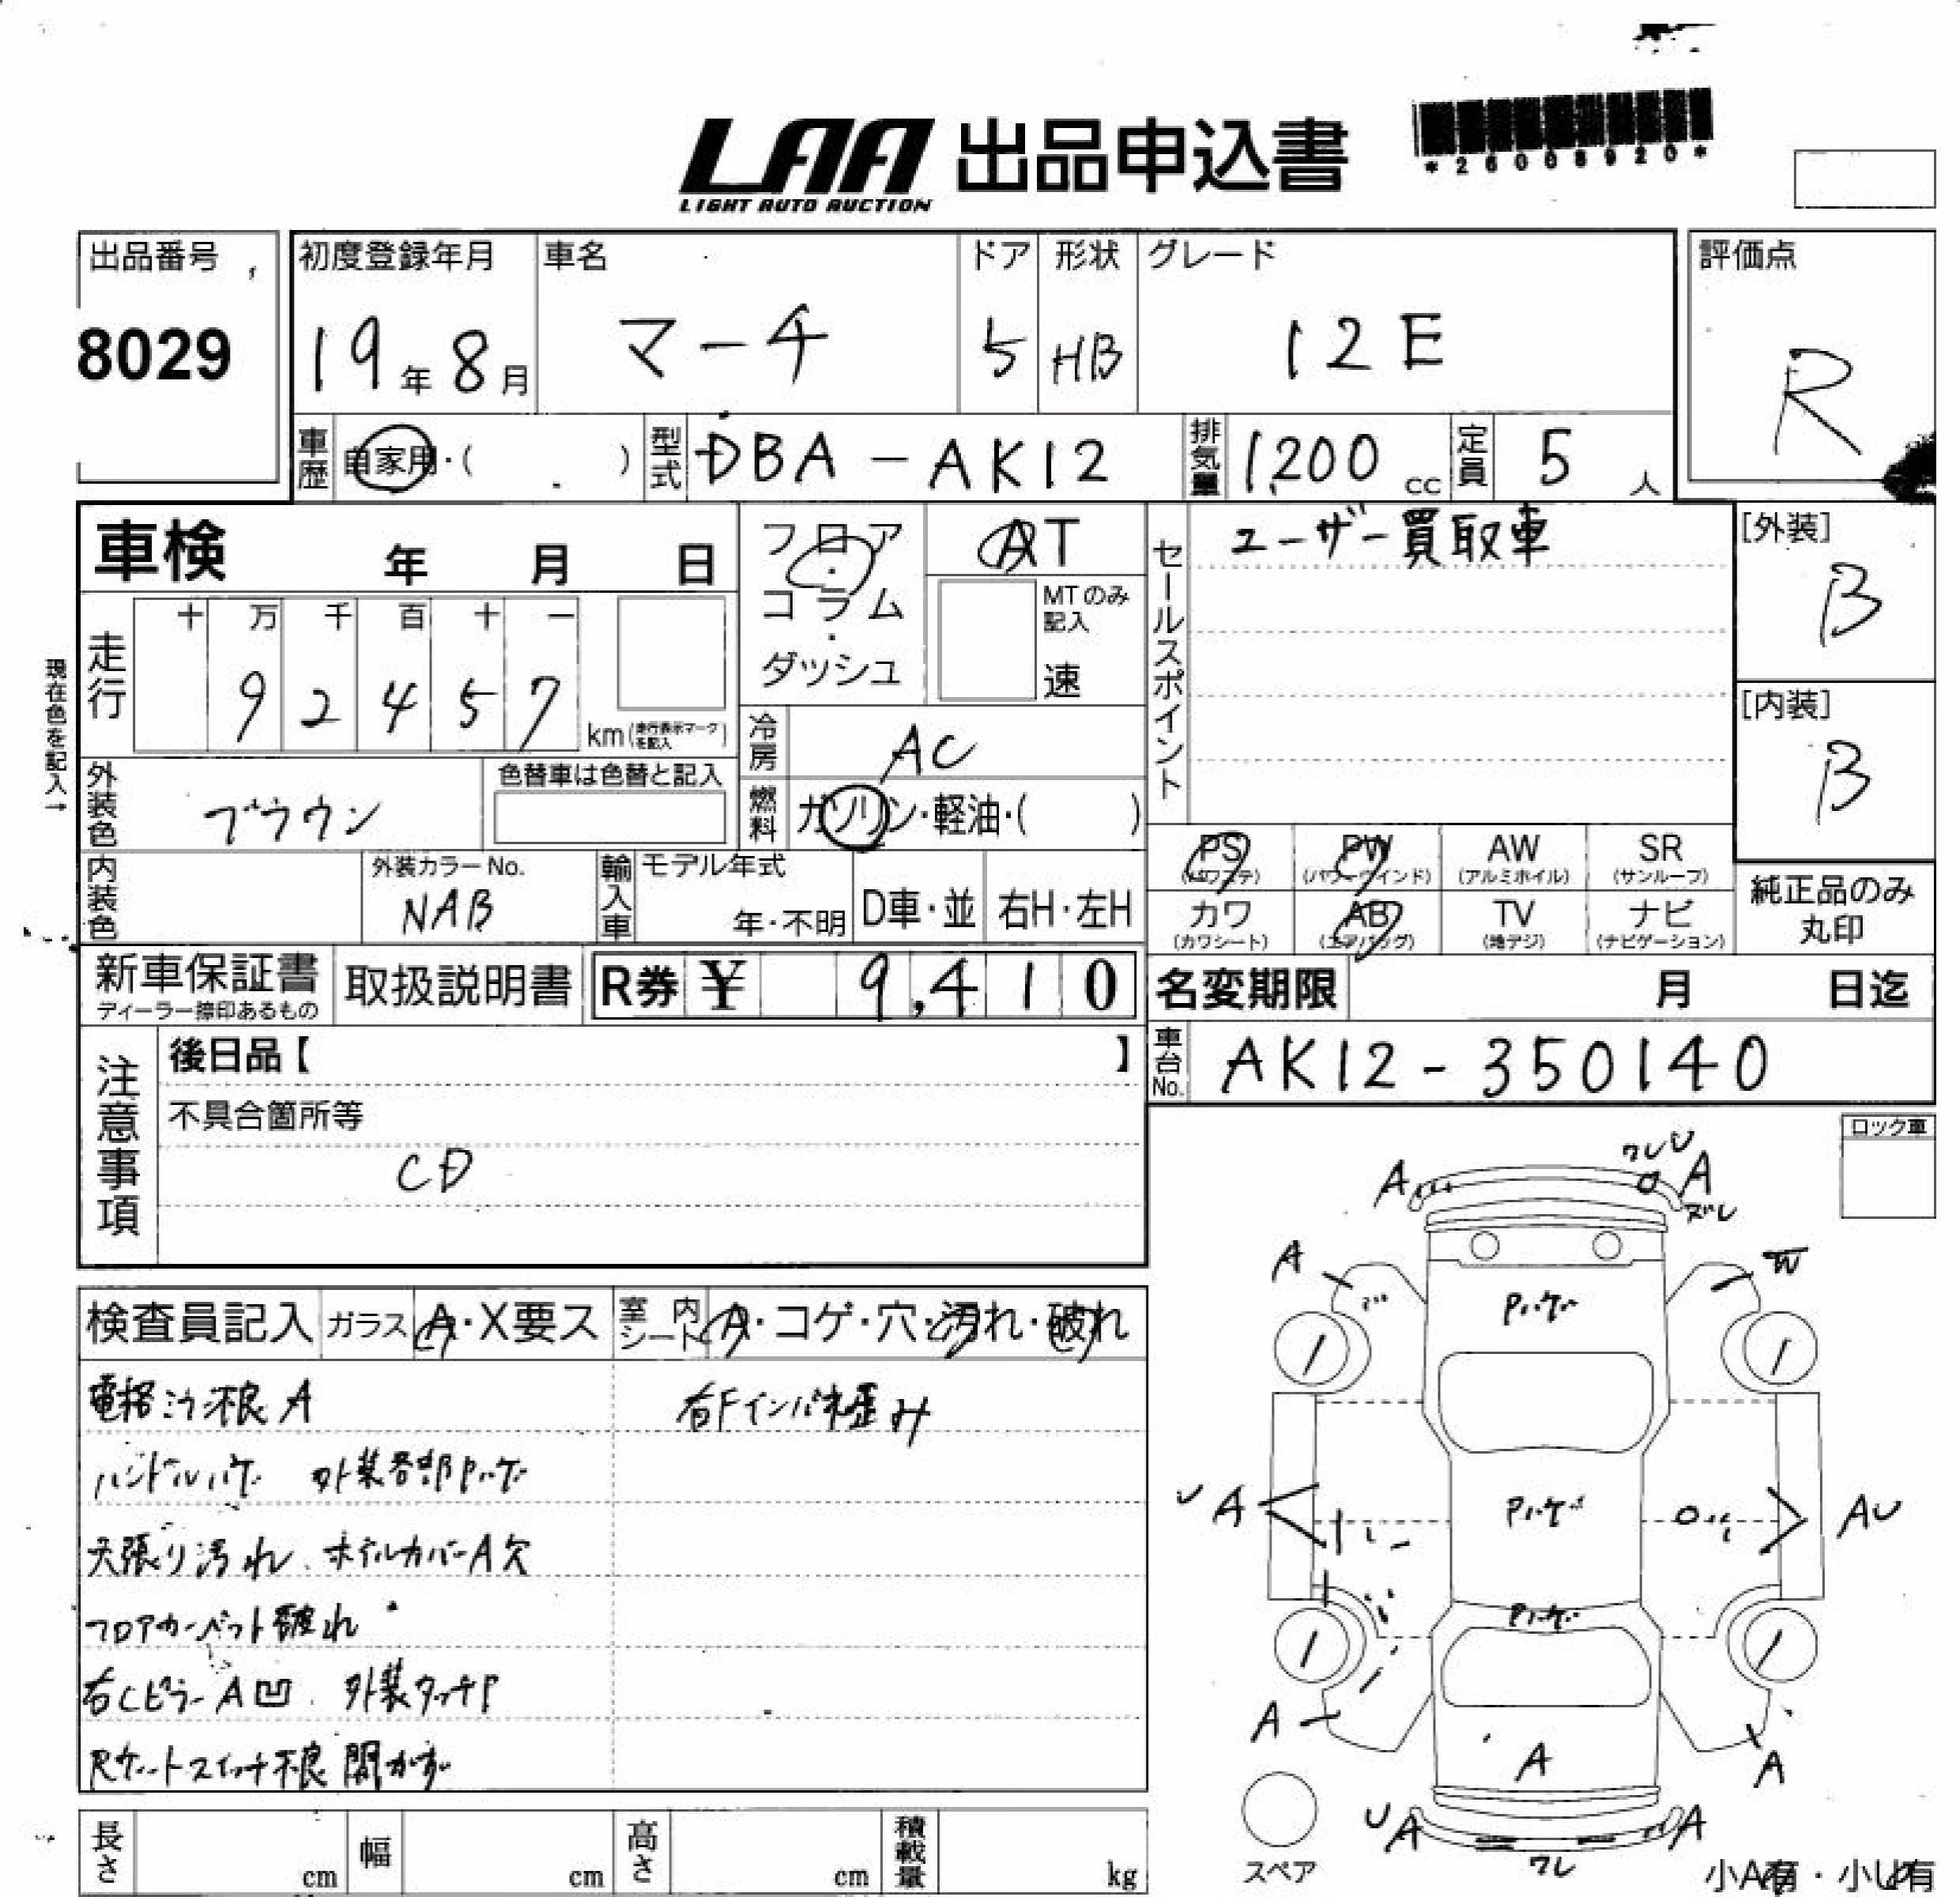 LAA 出品申込書
LIGHT AUTO AUCTION
*26008920*
出品番号
8029
初度登録年月
19年8月
車名
マーチ
ドア
5
形状
HB
グレード
12E
評価点
R
車歴
自家用・( )
型式
DBA-AK12
排気量
1,200cc
定員
5人
車検 年 月 日
フロア・コラム・ダッシュ
AT
MTのみ記入
速
セールスポイント
ユーザー買取車
[外装]
B
[内装]
B
現在色を記入→
走行
十 万 千 百 十 一
9 2 4 5 7
km(走行表示マークを記入)
冷房
AC
外装色
ブラウン
色替車は色替と記入
燃料
ガソリン・軽油・( )
内装色
外装カラーNo.
NAB
輸入車
モデル年式
年・不明
D車・並
右H・左H
PS (パワステ)
PW (パワーウインド)
AW (アルミホイル)
SR (サンルーフ)
カワ (カワシート)
AB (エアバッグ)
TV (地デジ)
ナビ (ナビゲーション)
純正品のみ丸印
新車保証書
ディーラー捺印あるもの
取扱説明書
R券 ¥ 9,410
名変期限 月 日迄
注意事項
後日品【 】
車台No.
AK12-350140
不具合箇所等
CD
ロック車
検査員記入
ガラス
A・X要ス
室内シート
A・コゲ・穴・汚れ・破れ
電格ミラー不良 A
右Fインパネ歪み
ハンドルハゲ 外装各部Pハゲ
天張り汚れ ホイルカバーA欠
フロアカーペット破れ
右CピラーA凹 外装タッチP
Rゲートスイッチ不良 開かず
ワレU
A
A
ズレ
A
W
Pハゲ
UA
Pハゲ
AU
Pハゲ
A
A
A
UA
A
ワレ
スペア
小A有・小U有
長さ cm
幅 cm
高さ cm
積載量 kg